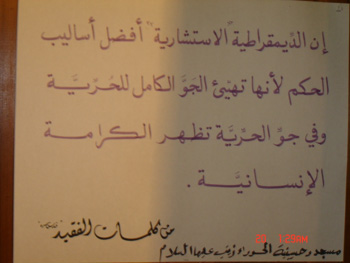 إن الديمقراطية "الاستشارية" أفضل أساليب
الحكم لأنها تهيئ الجو الكامل للحرية
وفي جو الحرية تظهر الكرامة
الإنسانية .
من كلمات الفقيد
مسجد وحسينية الحوراء زينب عليها السلام